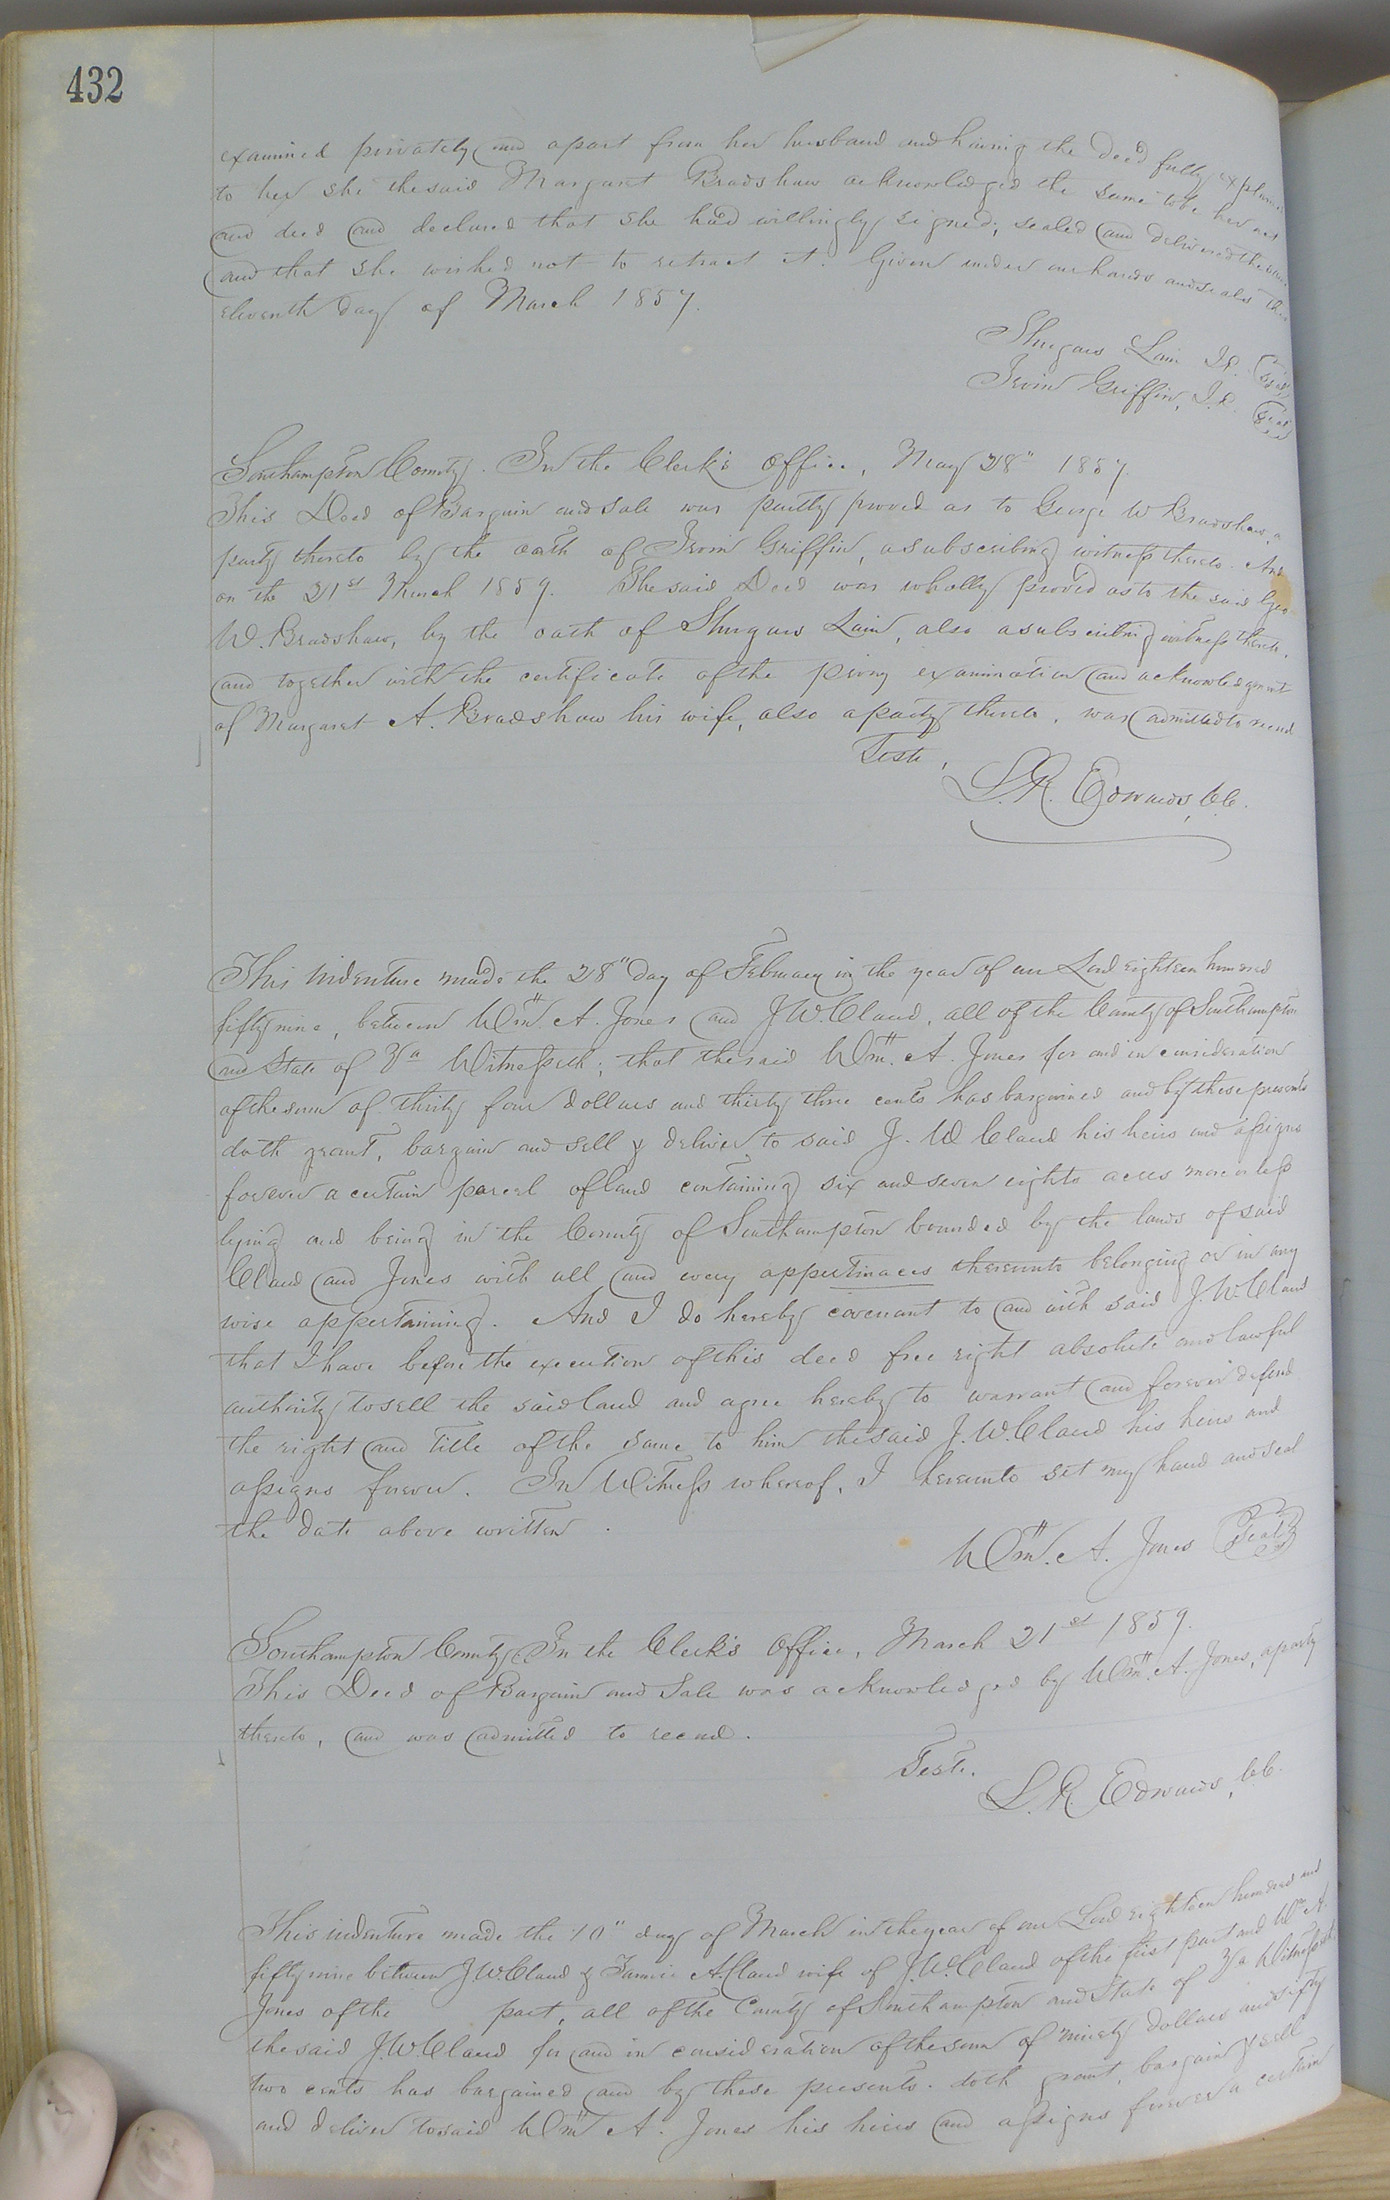 432
examined privately and apart from her husband and having the deed fully explained
to her she the said Margaret Bradshaw acknowledged the same to be her act
and deed and declared that she had willingly signed, sealed and delivered the same
and that she wished not to retract it. Given under our hands and seals this
eleventh day of March 1857.
Shugars Lain J.P. Seal
Irvin Griffin, J.P. Seal
Southampton County. In the Clerk's Office, May 28" 1857.
This Deed of Bargain and sale was partly proved as to George W Bradshaw, a
party thereto by the oath of Irvin Griffin, a subscribing witness thereto. And
on the 21st March 1859. The said Deed was wholly proved as to the said Geo
W. Bradshaw, by the oath of Shugars Lain, also a subscribing witness thereto.
and together with the certificate of the privy examination and acknowledgment
of Margaret A. Bradshaw his wife, also a party thereto, was admitted to record
Teste,
L. R. Edwards, C.C.
This indenture made the 28" day of February in the year of our Lord eighteen hundred
fifty nine, between Wm. A. Jones and J W. Claud, all of the County of Southampton
and State of Va Witnesseth; that the said Wm. A. Jones for and in consideration
of the sum of thirty four dollars and thirty three cents has bargained and by these presents
doth grant, bargain and sell & deliver to said J. W Claud his heirs and assigns
forever a certain parcel of land containing six and seven eights acres more or less
lying and being in the County of Southampton bounded by the lands of said
Claud and Jones with all and every appertinaces thereunto belonging or in any
wise appertaining. And I do hereby covenant to and with said J. W. Claud
that I have before the execution of this deed free right absolute and lawful
authority to sell the said land and agree hereby to warrant and forever defend
the right and title of the same to him the said J. W. Claud his heirs and
assigns forever. In Witness whereof, I hereunto set my hand and seal
the date above written.
Wm. A. Jones Seal
Southampton County, In the Clerk's Office, March 21st 1859.
This Deed of Bargain and Sale was acknowledged by Wm. A. Jones, a party
thereto, and was admitted to record.
Teste.
L. R. Edwards, C.C.
This indenture made the 10" day of March in the year of our Lord eighteen hundred and
fifty nine between J W. Claud & Fannie A. Claud wife of J. W. Claud of the first part and Wm A.
Jones of the part, all of the County of Southampton and State of Va Witnesseth
the said J. W. Claud for and in consideration of the sum of ninety dollars and sixty
two cents has bargained and by these presents. doth grant, bargain & sell
and deliver to said Wm A. Jones his heirs and assigns forever a certain